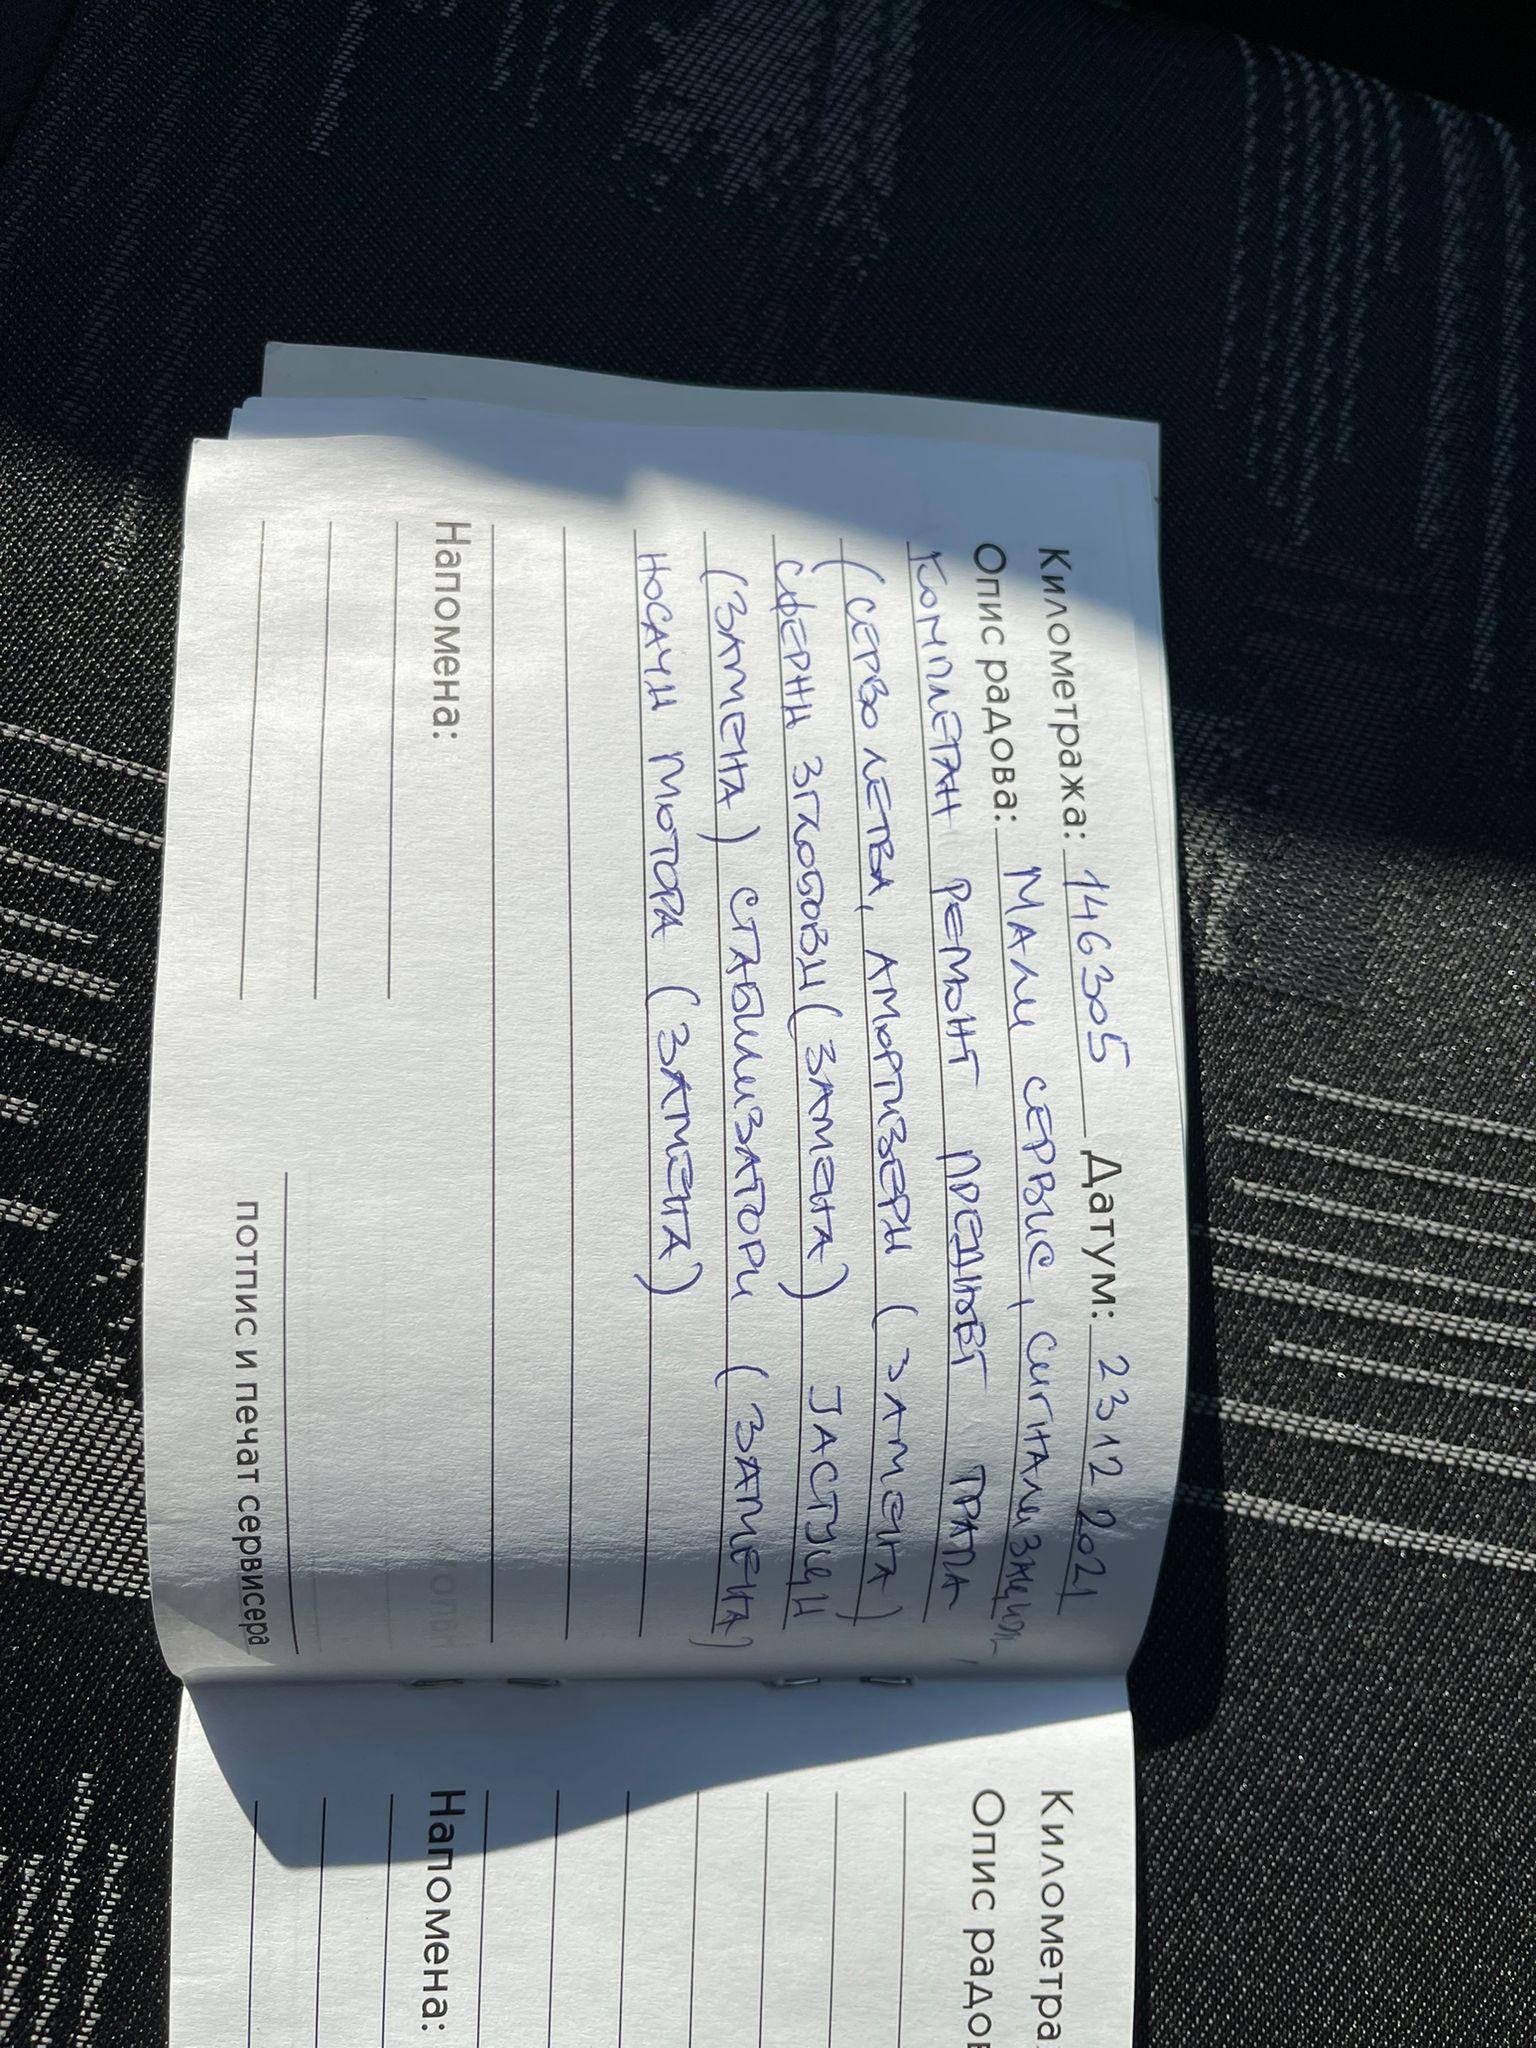 Километража: 146305 Датум: 23 12 2021
Опис радова: МАЛИ СЕРВИС, СИГНАЛИЗАЦИЈА,
КОМПЛЕТАН РЕМОНТ ПРЕДЊЕГ ТРАПА
(СЕРВО ЛЕТВА, АМОРТИЗЕРИ (ЗАМЕНА)
СФЕРНИ ЗГЛОБОВИ (ЗАМЕНА) ЈАСТУЦИ
(ЗАМЕНА) СТАБИЛИЗАТОРИ (ЗАМЕНА)
НОСАЧИ МОТОРА (ЗАМЕНА)
Напомена:
потпис и печат сервисера
Километра
Опис радов
Напомена: